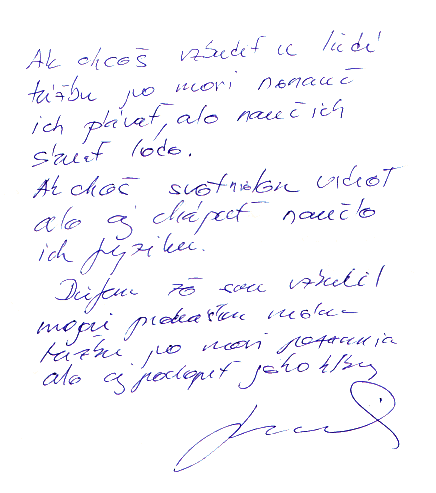 Ak chceš vzbudiť u ľudí
túžbu po mori nenauč
ich plávať, ale nauč ich
stavať lode.
Ak chceš svet nielen vidieť
ale aj chápať naučte
ich fyziku.
Dúfam že som vzbudil
mojou prednáškou
túžbu po mori poznania
ale aj pochopiť jeho hĺbky